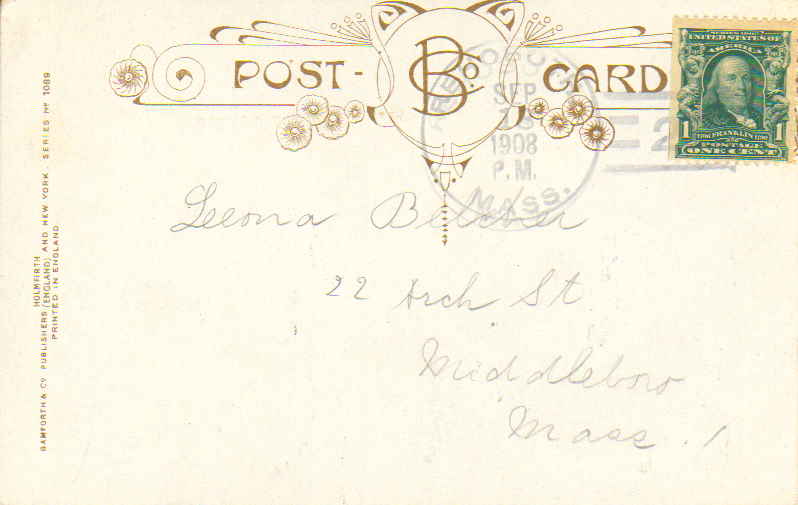 POST- B Co CARD
SERIES 1902
UNITED STATES OF
AMERICA
1 FRANKLIN 1
POSTAGE
ONE CENT
SEP
1908
P.M.
MASS.
2
Leona
22 Arch St
Middleboro
Mass.
HOLMFIRTH
BAMFORTH & CO. PUBLISHERS (ENGLAND) AND NEW YORK · SERIES No 1089
PRINTED IN ENGLAND